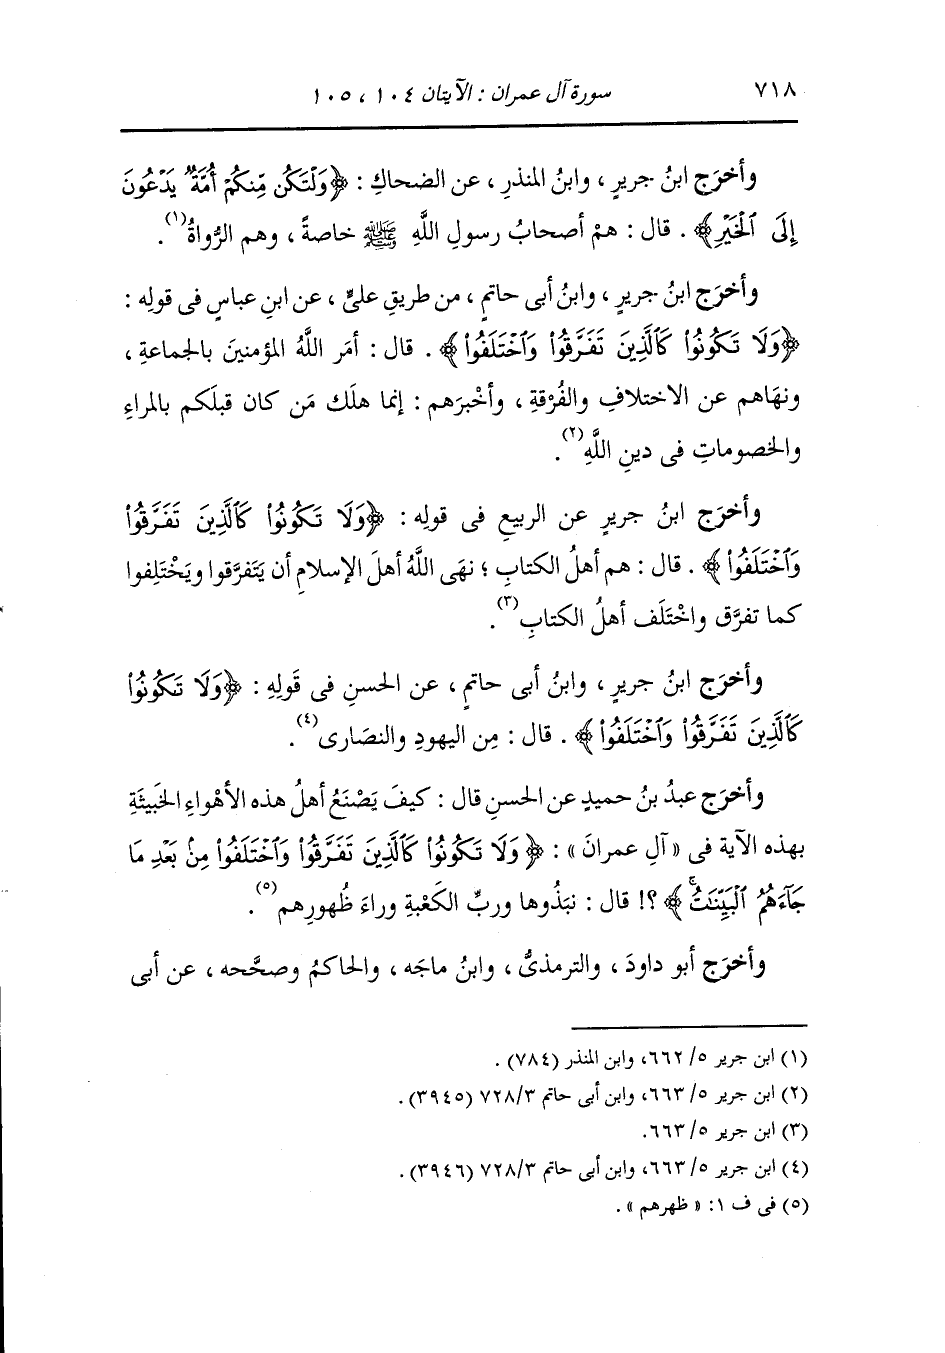 ٧١٨
سورة آل عمران : الآيتان ١٠٤ ، ١٠٥
وأخرَج ابنُ جريرٍ ، وابنُ المنذرِ ، عن الضحاكِ : ﴿وَلْتَكُن مِّنكُمْ أُمَّةٌ يَدْعُونَ
إِلَى ٱلْخَيْرِ﴾ . قال : همْ أصحابُ رسولِ اللَّهِ ﷺ خاصةً ، وهم الرُّواةُ(١) .
وأخرَج ابنُ جريرٍ ، وابنُ أبى حاتمٍ ، من طريقِ علىٍّ ، عن ابنِ عباسٍ فى قولِه :
﴿وَلَا تَكُونُوا۟ كَٱلَّذِينَ تَفَرَّقُوا۟ وَٱخْتَلَفُوا۟﴾ . قال : أمَر اللَّهُ المؤمنينَ بالجماعةِ ،
ونهَاهم عن الاختلافِ والفُرْقةِ ، وأخْبرَهم : إنما هلَك مَن كان قبلَكم بالمراءِ
والخصوماتِ فى دينِ اللَّهِ(٢) .
وأخرَج ابنُ جريرٍ عن الربيعِ فى قولِه : ﴿وَلَا تَكُونُوا۟ كَٱلَّذِينَ تَفَرَّقُوا۟
وَٱخْتَلَفُوا۟﴾ . قال : هم أهلُ الكتابِ ؛ نهَى اللَّهُ أهلَ الإسلامِ أن يَتَفرَّقوا ويَخْتَلِفوا
كما تفرَّق واخْتَلَف أهلُ الكتابِ(٣) .
وأخرَج ابنُ جريرٍ ، وابنُ أبى حاتمٍ ، عن الحسنِ فى قَولِهِ : ﴿وَلَا تَكُونُوا۟
كَٱلَّذِينَ تَفَرَّقُوا۟ وَٱخْتَلَفُوا۟﴾ . قال : مِن اليهودِ والنصَارى(٤) .
وأخرَج عبدُ بنُ حميدٍ عن الحسنِ قال : كيفَ يَصْنَعُ أهلُ هذه الأهْواءِ الخَبيثَةِ
بهذه الآية فى « آلِ عمرانَ » : ﴿وَلَا تَكُونُوا۟ كَٱلَّذِينَ تَفَرَّقُوا۟ وَٱخْتَلَفُوا۟ مِنۢ بَعْدِ مَا
جَآءَهُمُ ٱلْبَيِّنَـٰتُۚ﴾ ؟! قال : نبَذُوها وربِّ الكَعْبةِ وراءَ ظُهورِهم(٥) .
وأخرَج أبو داودَ ، والترمذىُّ ، وابنُ ماجَه ، والحاكمُ وصحَّحه ، عن أبى
(١) ابن جرير ٥/ ٦٦٢، وابن المنذر (٧٨٤) .
(٢) ابن جرير ٥/ ٦٦٣، وابن أبى حاتم ٣/ ٧٢٨ (٣٩٤٥) .
(٣) ابن جرير ٥/ ٦٦٣.
(٤) ابن جرير ٥/ ٦٦٣، وابن أبى حاتم ٣/ ٧٢٨ (٣٩٤٦) .
(٥) فى ف ١: « ظهرهم » .